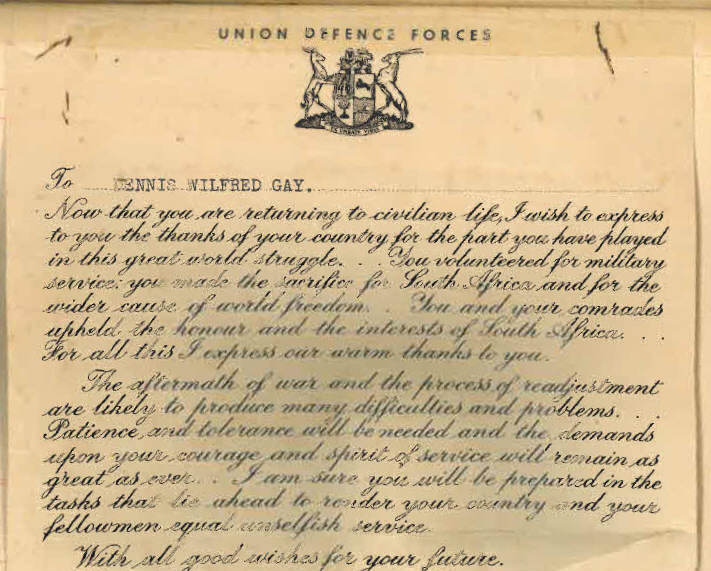 UNION DEFENCE FORCES
EX UNITATE VIRES
To DENNIS WILFRED GAY.
Now that you are returning to civilian life, I wish to express
to you the thanks of your country for the part you have played
in this great world struggle. . You volunteered for military
service: you made the sacrifice for South Africa and for the
wider cause of world freedom. . You and your comrades
upheld the honour and the interests of South Africa. . .
For all this I express our warm thanks to you.
The aftermath of war and the process of readjustment
are likely to produce many difficulties and problems. . .
Patience and tolerance will be needed and the demands
upon your courage and spirit of service will remain as
great as ever. . I am sure you will be prepared in the
tasks that lie ahead to render your country and your
fellowmen equal unselfish service.
With all good wishes for your future.